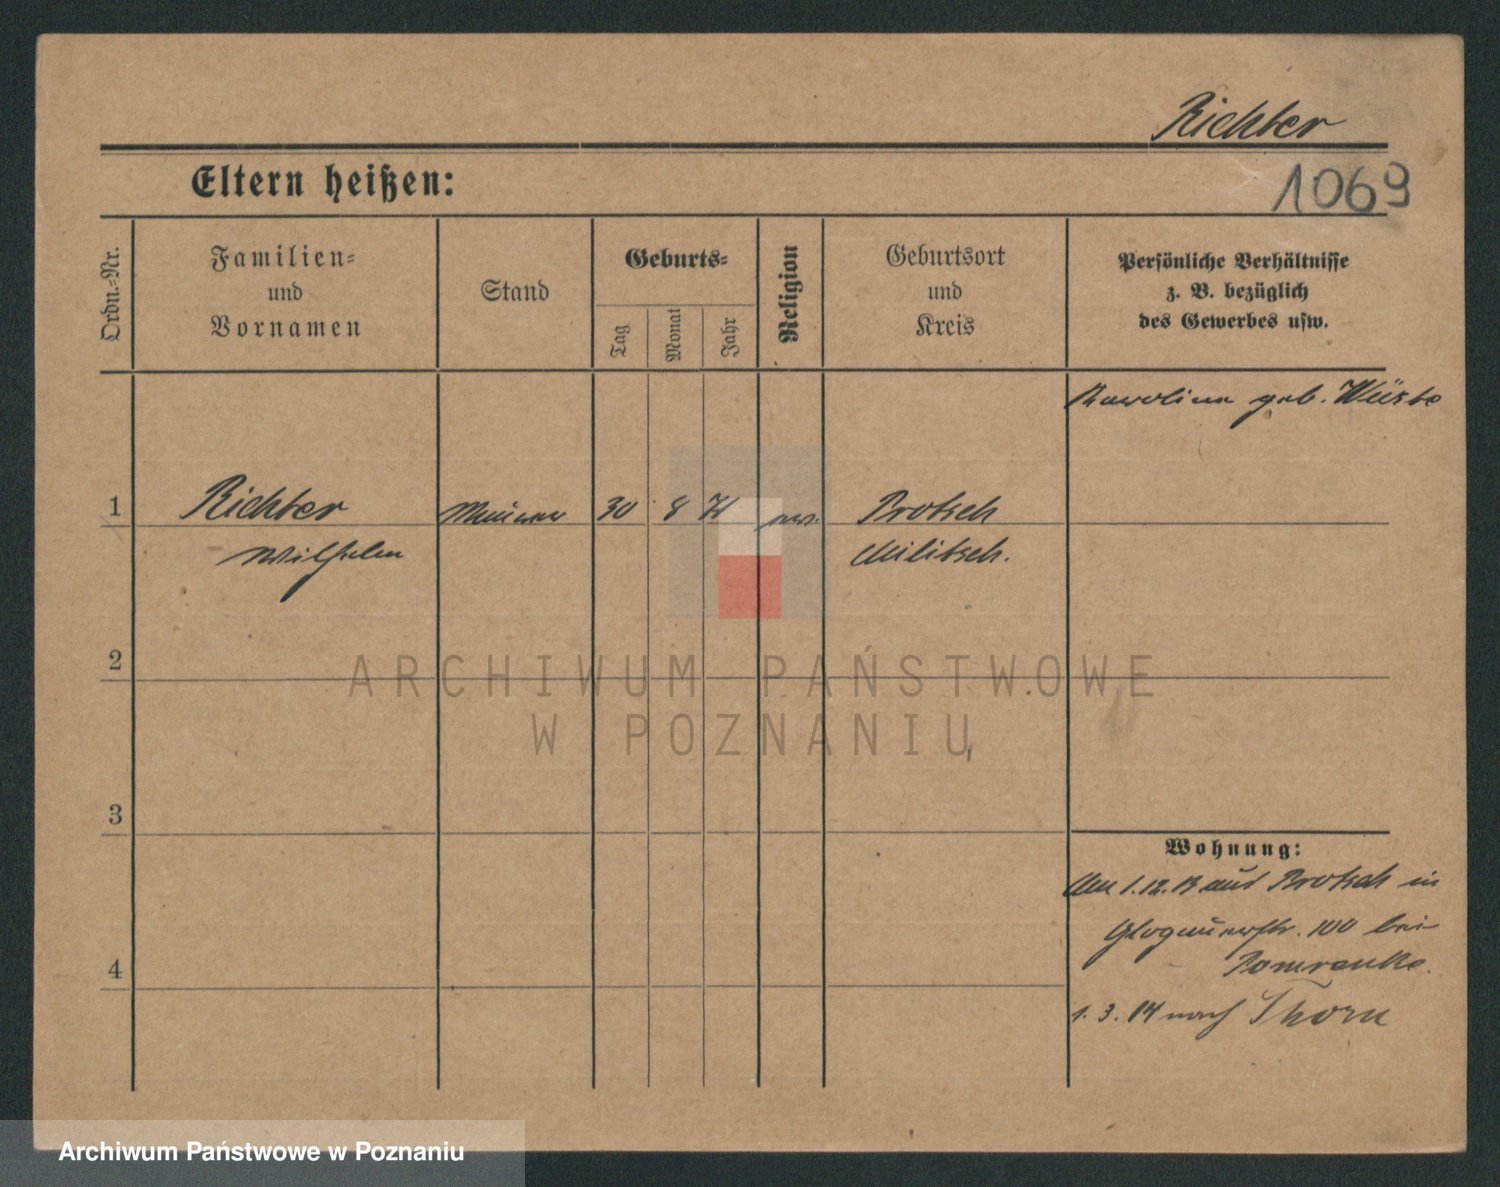 Richter
Eltern heißen:
1069
Ordn.-Nr.
Familien-
und
Vornamen
Stand
Geburts-
Tag
Monat
Jahr
Religion
Geburtsort
und
Kreis
Persönliche Verhältnisse
z. B. bezüglich
des Gewerbes usw.
geb. Wüste
1
Richter
30 8
ev.
Protsch
Wilhelm
Militsch.
2
ARCHIWUM PAŃSTWOWE
W POZNANIU
3
Wohnung:
Am 1.12.13 aus Protsch in
Glogauerstr. 100 bei
Pomrenke.
4
1. 3. 14 nach Thorn
Archiwum Państwowe w Poznaniu